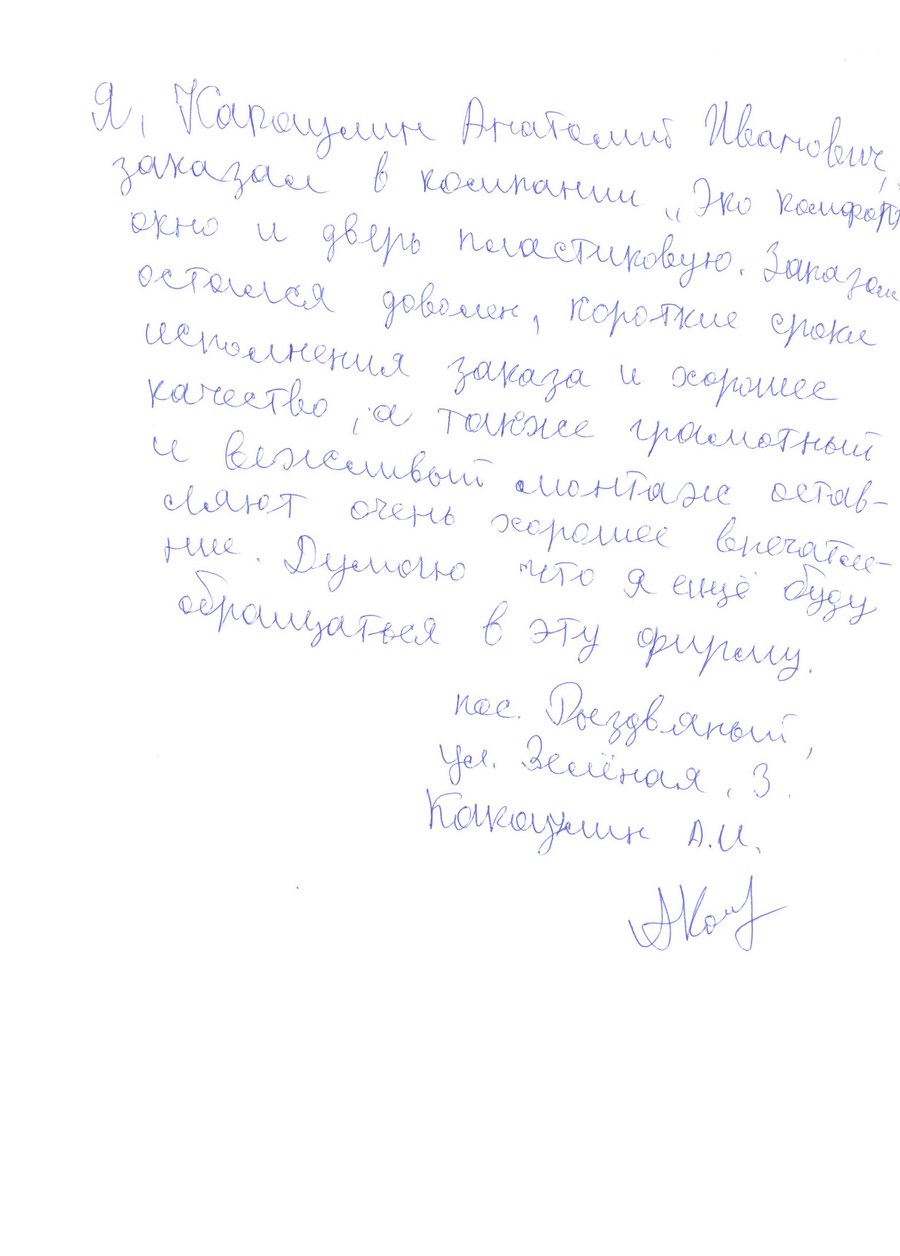 Я, Караулин Анатолий Иванович,
заказал в компании „Эко комфорт"
окно и дверь пластиковую. Заказом
остался доволен, короткие сроки
исполнения заказа и хорошее
качество, а также грамотный
и вежливый монтаж остав-
ляют очень хорошее впечатле-
ние. Думаю что я ещё буду
обращаться в эту фирму.
пос. Рыздвяный,
ул. Зелёная, 3.
А.И.